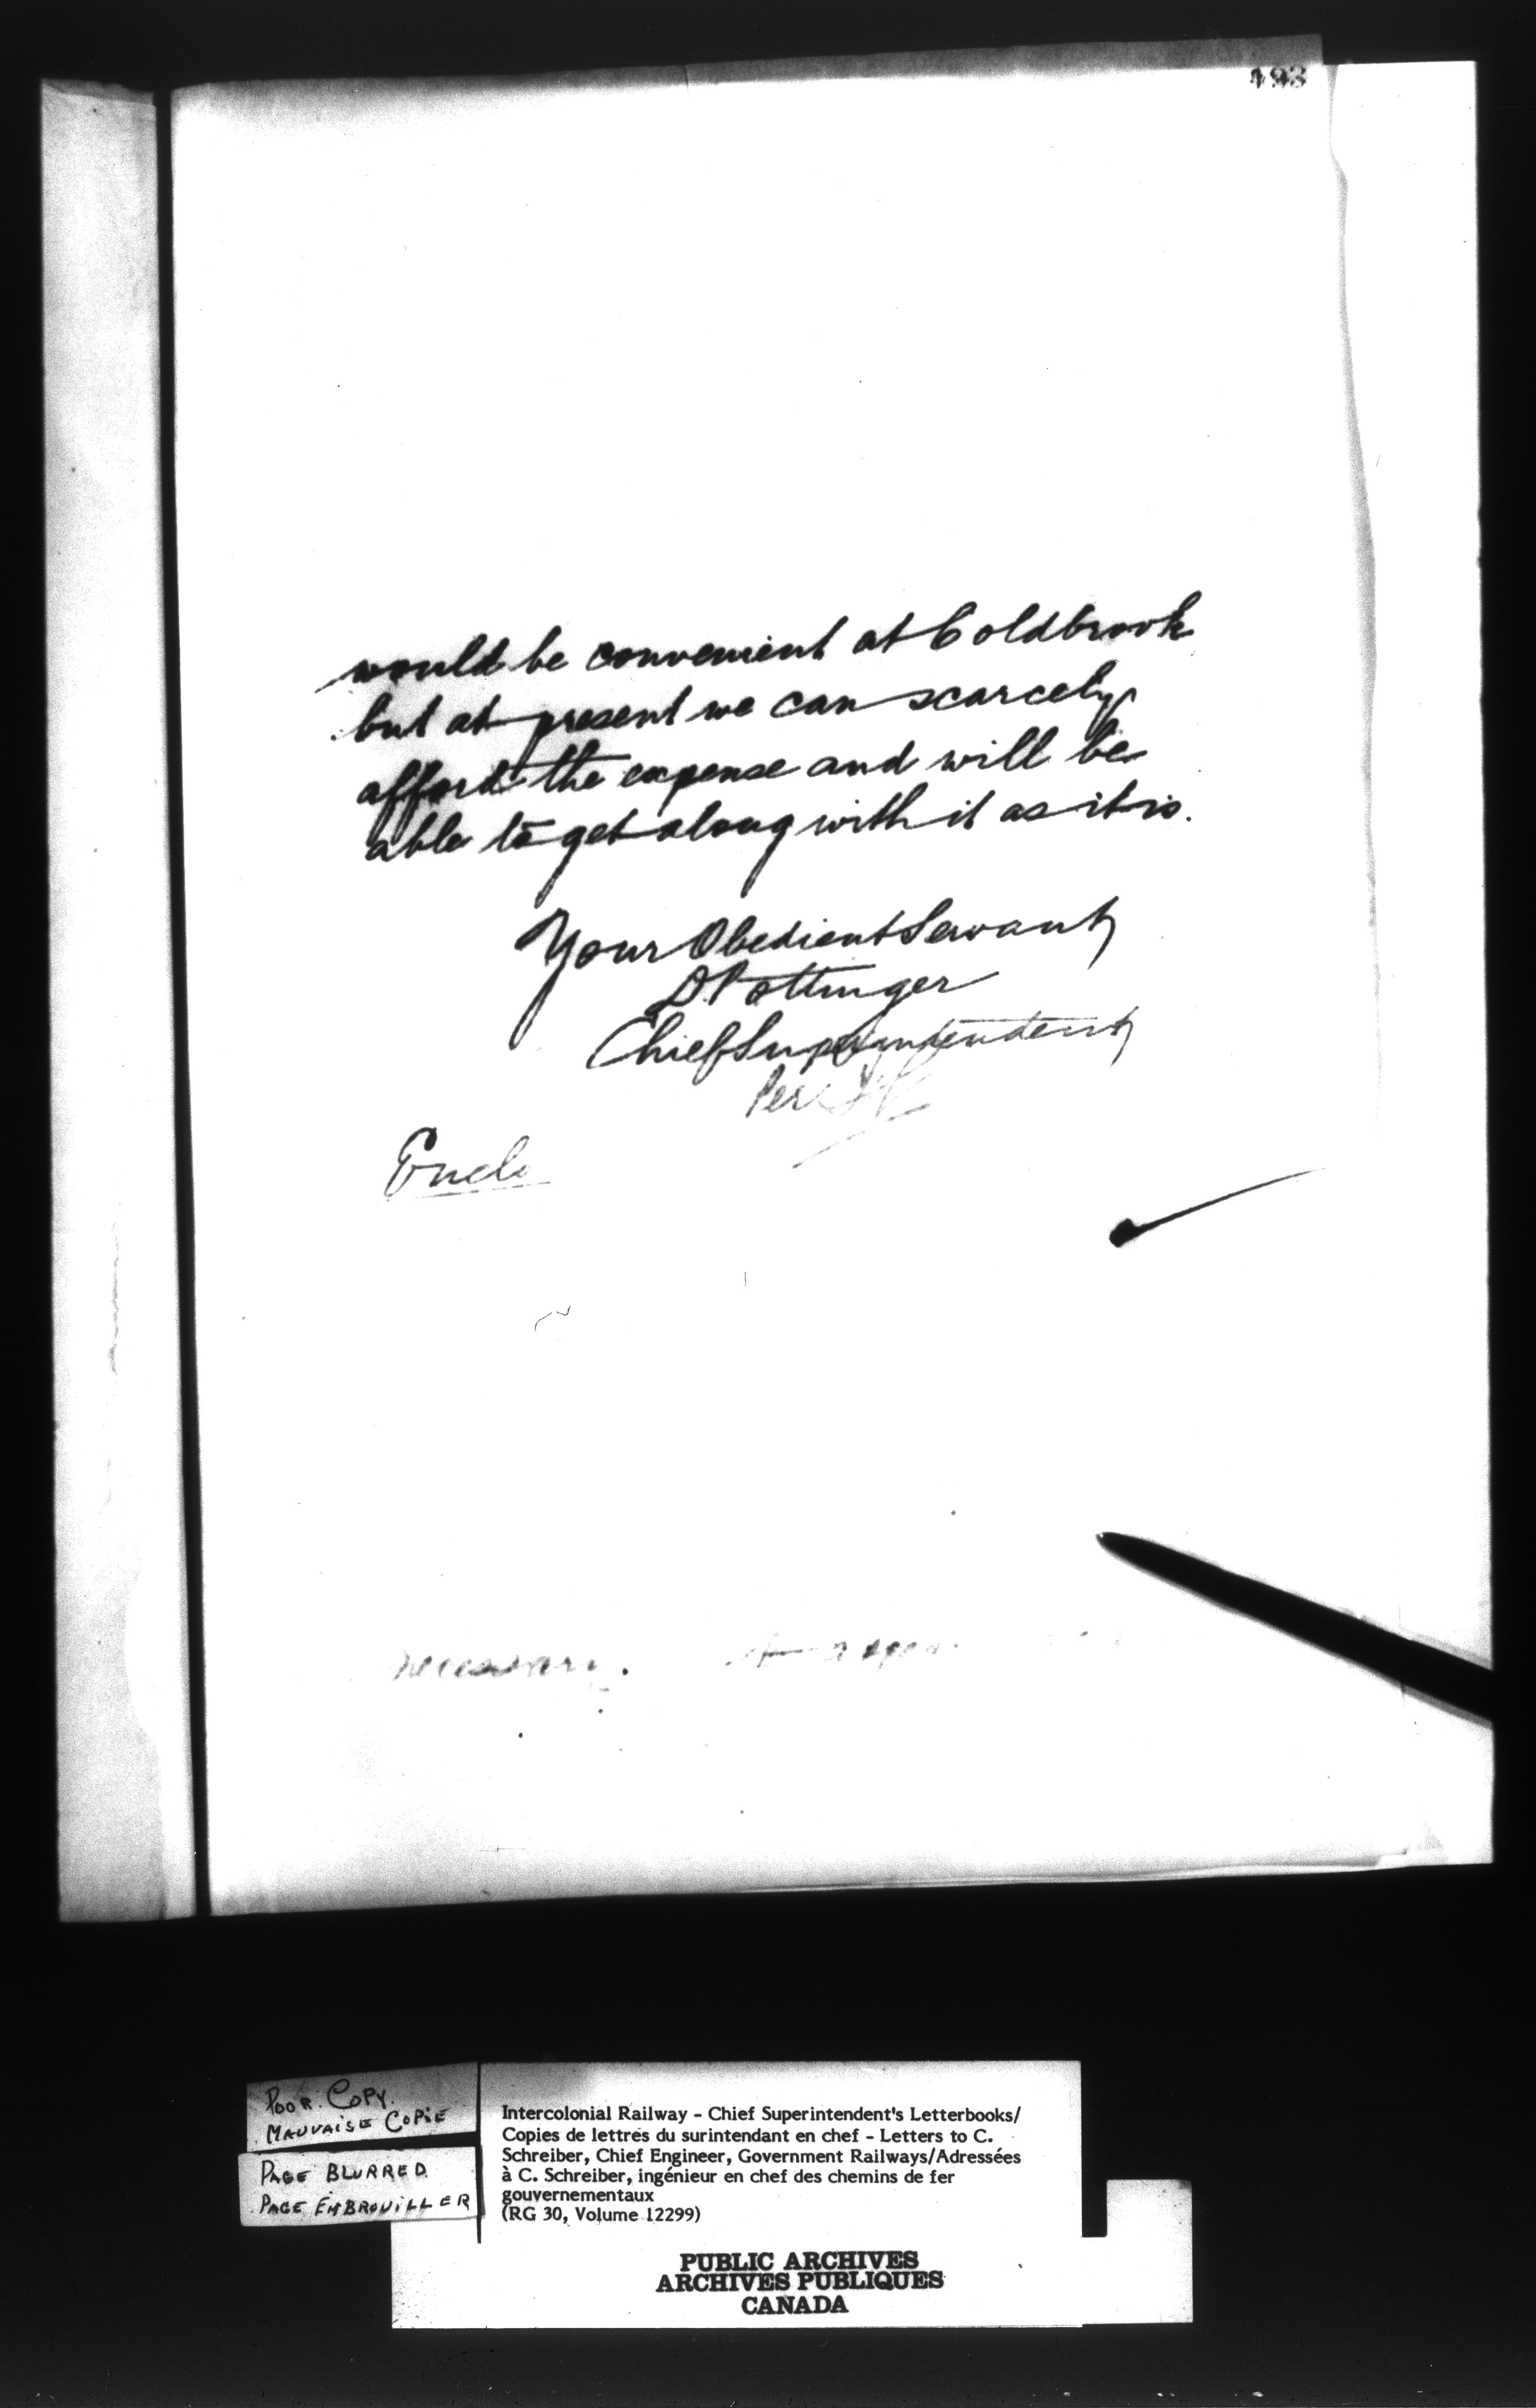 493
would be convenient at Coldbrook
but at present we can scarcely
afford the expense and will be
able to get along with it as it is.
Your Obedient Servant
D. Pottinger
Chief Superintendent
Per
Encls
necessary.
POOR COPY.
MAUVAISE COPIE
PAGE BLURRED
PAGE EMBROUILLER
Intercolonial Railway - Chief Superintendent's Letterbooks/
Copies de lettres du surintendant en chef - Letters to C.
Schreiber, Chief Engineer, Government Railways/Adressées
à C. Schreiber, ingénieur en chef des chemins de fer
gouvernementaux
(RG 30, Volume 12299)
PUBLIC ARCHIVES
ARCHIVES PUBLIQUES
CANADA